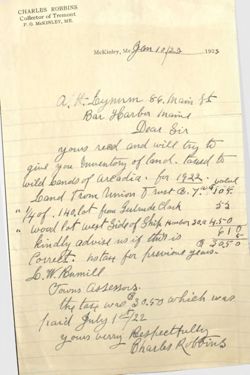 CHARLES ROBBINS
Collector of Tremont
P. O. McKINLEY, ME.
McKinley, Me Jan 10/23 1923
A. H. Lynam Main St
Bar Harbor Maine
Dear Sir
yours recd and will try to
give you Inventory of land taxed to
wild lands of Arcadia. for 1922. value
Land from Union Trust
" 1/4 of 1 H Lot from Gertrude Clark 55
" Wood Lot west Side of Ship Harbor 450
610
Kindly advise us if this is $ 30.50
Correct. notes for previous years.
L. W. Rumill
Towns Assessors.
thy tax were $30.50 which was
paid July 1st/22
yours verry Respectfully
Charles Robbins